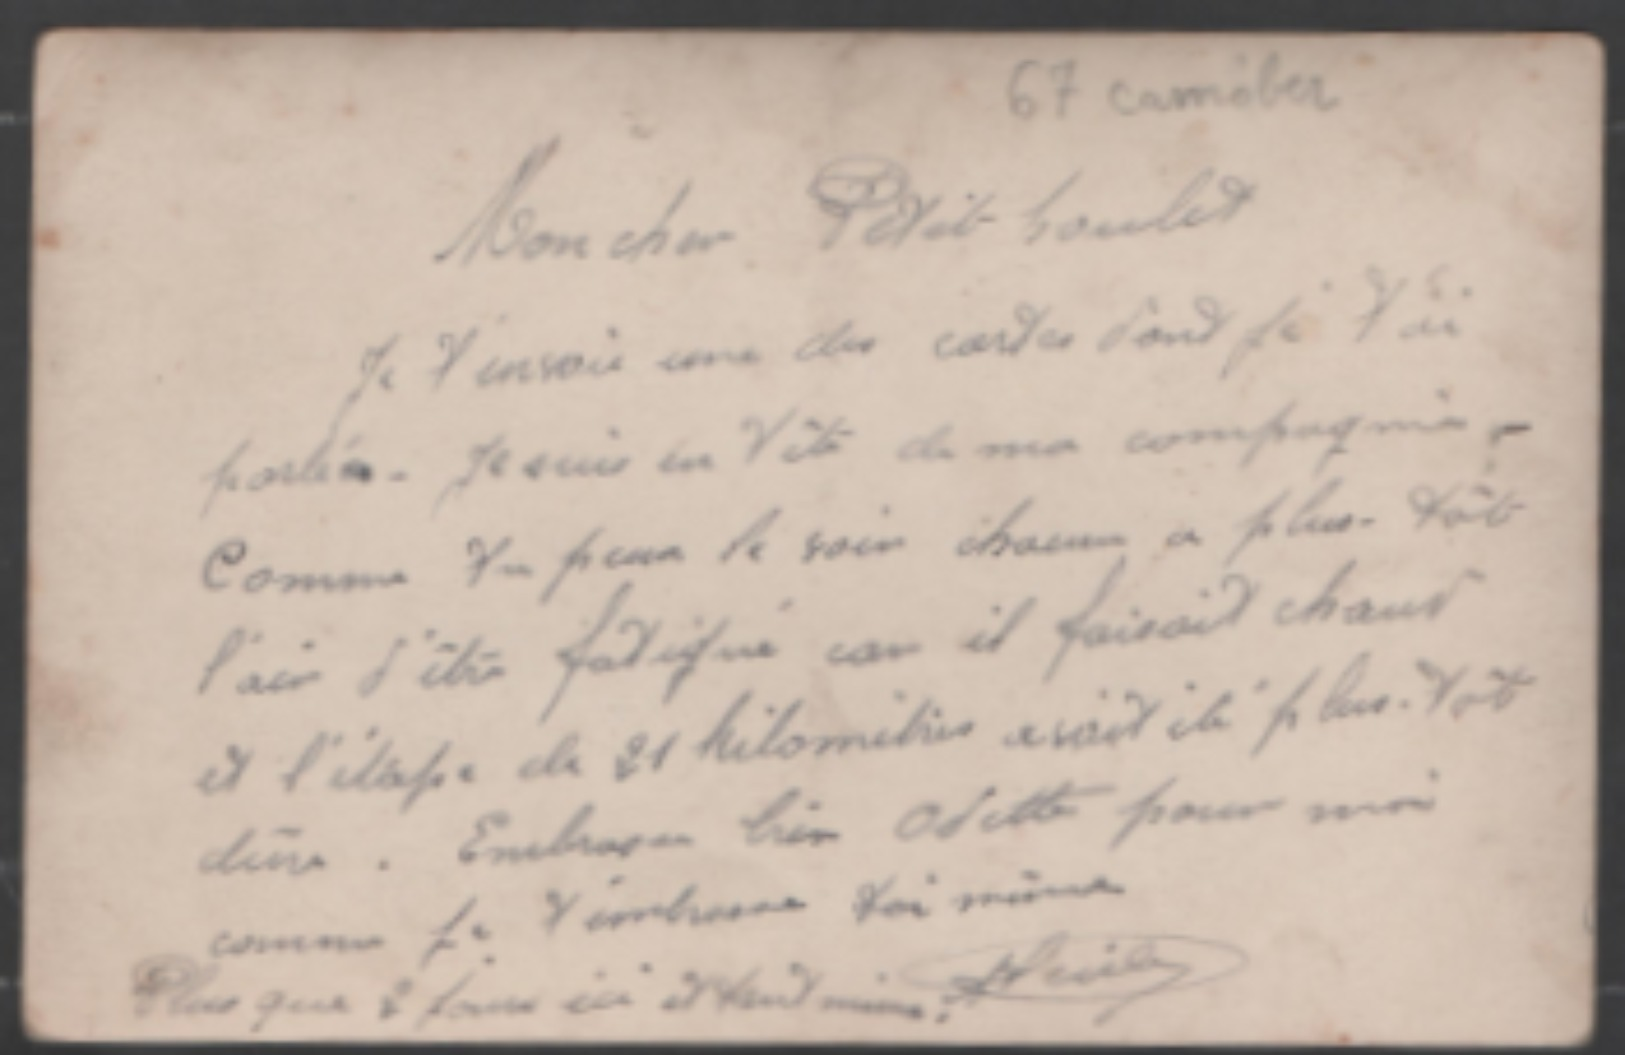 67 camóber
Mon cher Petit
Je t'envoie une des cartes dont je t'ai
parlé. Je suis en tête de ma compagnie.
Comme tu peux le voir chacun a plus-tôt
l'air d'être fatigué car il faisait chaud
et l'étape de 21 kilomètres avait été plus-tôt
dure. Embrasse bien Odette pour moi
comme je t'embrasse toi même
Plus que 2 jours ici et tant mieux.